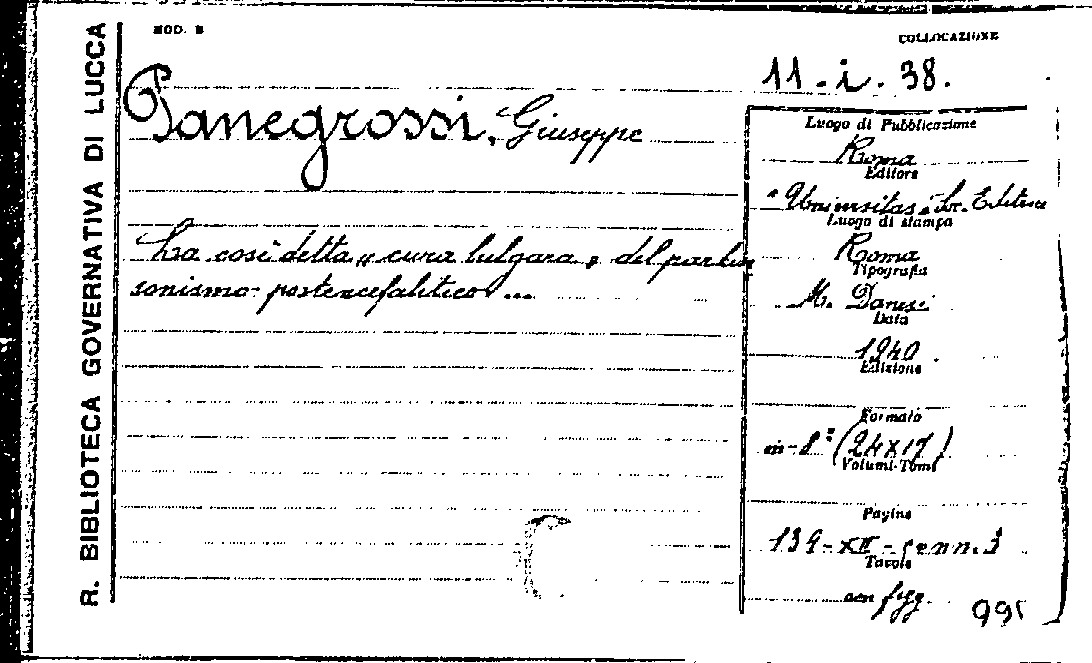 R. BIBLIOTECA GOVERNATIVA DI LUCCA
MOD. B
COLLOCAZIONE
11-i-38.
Panegrossi, Giuseppe
La cosi detta „ cura bulgara „ del parkin
sonismo postencefalitico ...
Luogo di Pubblicazione
Roma
Editore
"Universitas" Soc. Editrice
Luogo di stampa
Roma
Tipografia
M. Danesi
Data
1940.
Edizione
Formato
in-8° (24x17)
Volumi-Tomi
Pagine
139-XII-
Tavole
con figg.